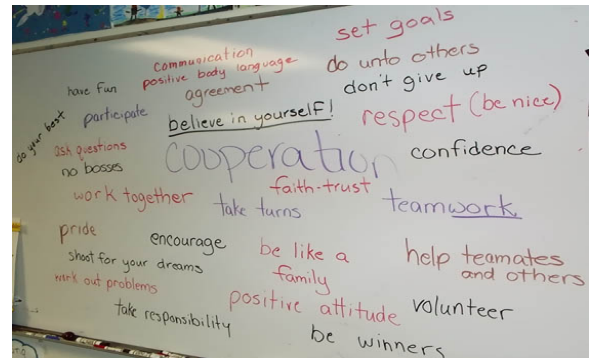 set goals
communication
positive body language
do unto others
have fun
agreement
don't give up
participate
believe in yourself!
respect (be nice)
do your best
ask questions
cooperation
confidence
no bosses
work together
faith-trust
take turns
teamwork
pride
encourage
be like a
family
help teamates
and others
shoot for your dreams
work out problems
positive attitude
volunteer
take responsibility
be winners